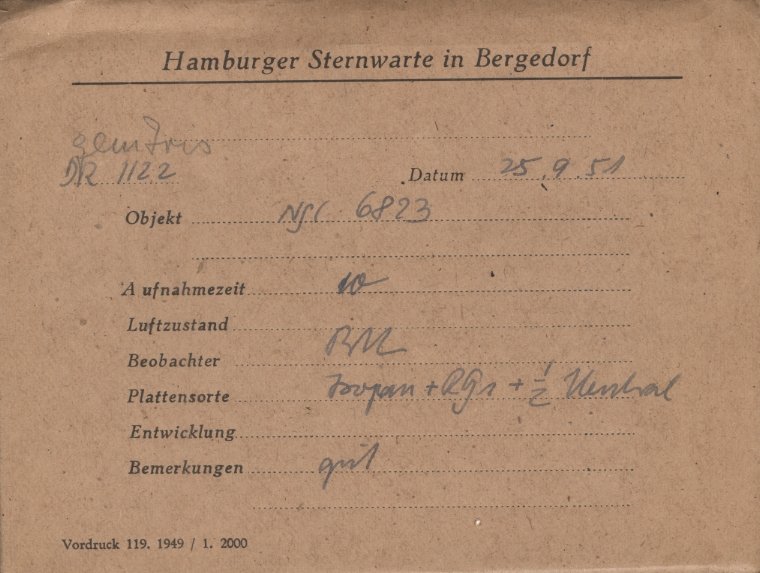 Hamburger Sternwarte in Bergedorf
DR 1122 Datum 25.9.51
Objekt NGC 6823
Aufnahmezeit 10
Luftzustand
Beobachter
Plattensorte Isopan + RG1 + 1/2 Neutral
Entwicklung
Bemerkungen gut
Vordruck 119. 1949 / 1. 2000